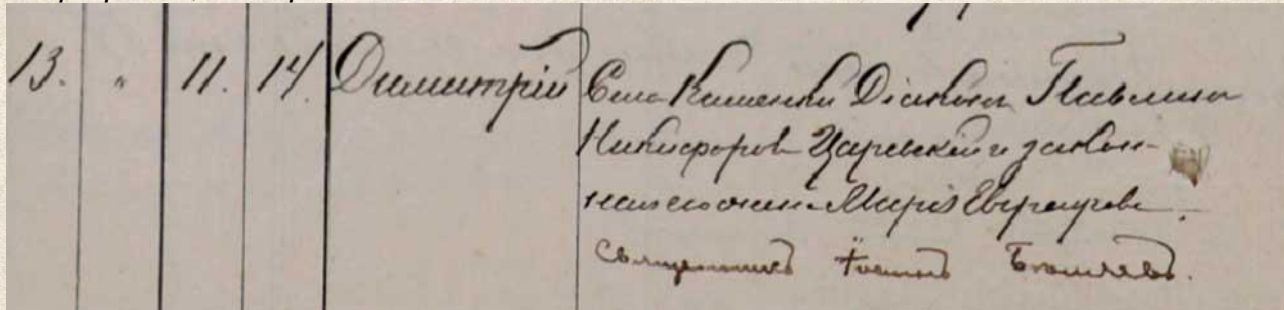 13. " 11. 14. Димитрій Села Каменки Діаконъ Павлинъ
Никифоровъ Царевскій и закон-
ная его жена Марія Евграфова.
Священникъ Іоаннъ